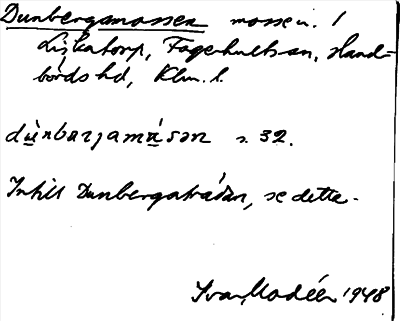 Dunbergsmossen mosse i. 1
Liskatorp, Fagerhults sn, Hand=
börds hd, Klm. l.
dùnbarjamásən s. 32.
Intill Dunbergatråtån, se detta.
Ivar Modéer 1948